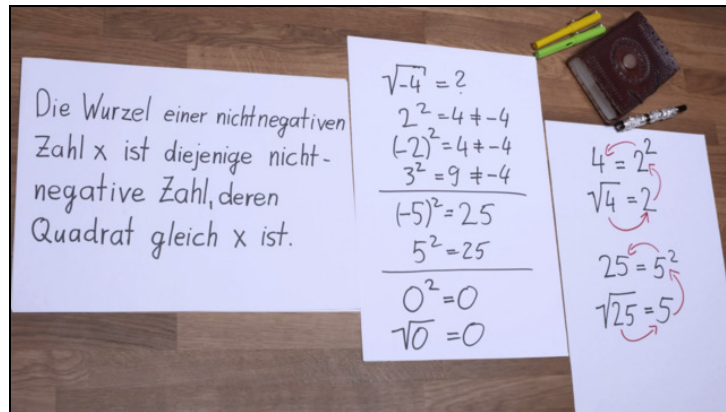 Die Wurzel einer nichtnegativen
Zahl x ist diejenige nicht-
negative Zahl, deren
Quadrat gleich x ist.
√-4 = ?
2² = 4 ≠ -4
(-2)² = 4 ≠ -4
3² = 9 ≠ -4
(-5)² = 25
5² = 25
0² = 0
√0 = 0
4 = 2²
√4 = 2
25 = 5²
√25 = 5